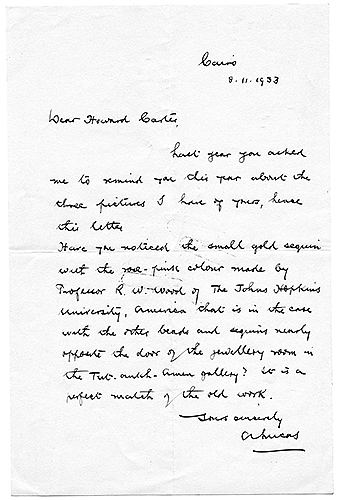 Cairo
8.11.1933
Dear Howard Carter,
Last year you asked
me to remind you this year about the
three pictures I have of yours, hence
this letter
Have you noticed the small gold sequin
with the rose-pink colour made by
Professor R. W. Wood of The Johns Hopkins
University, America that is in the case
with the other beads and sequins nearly
opposite the door of the jewellery room in
the Tut-ankh-Amen gallery? It is a
perfect match of the old work.
Yours sincerely
A Lucas